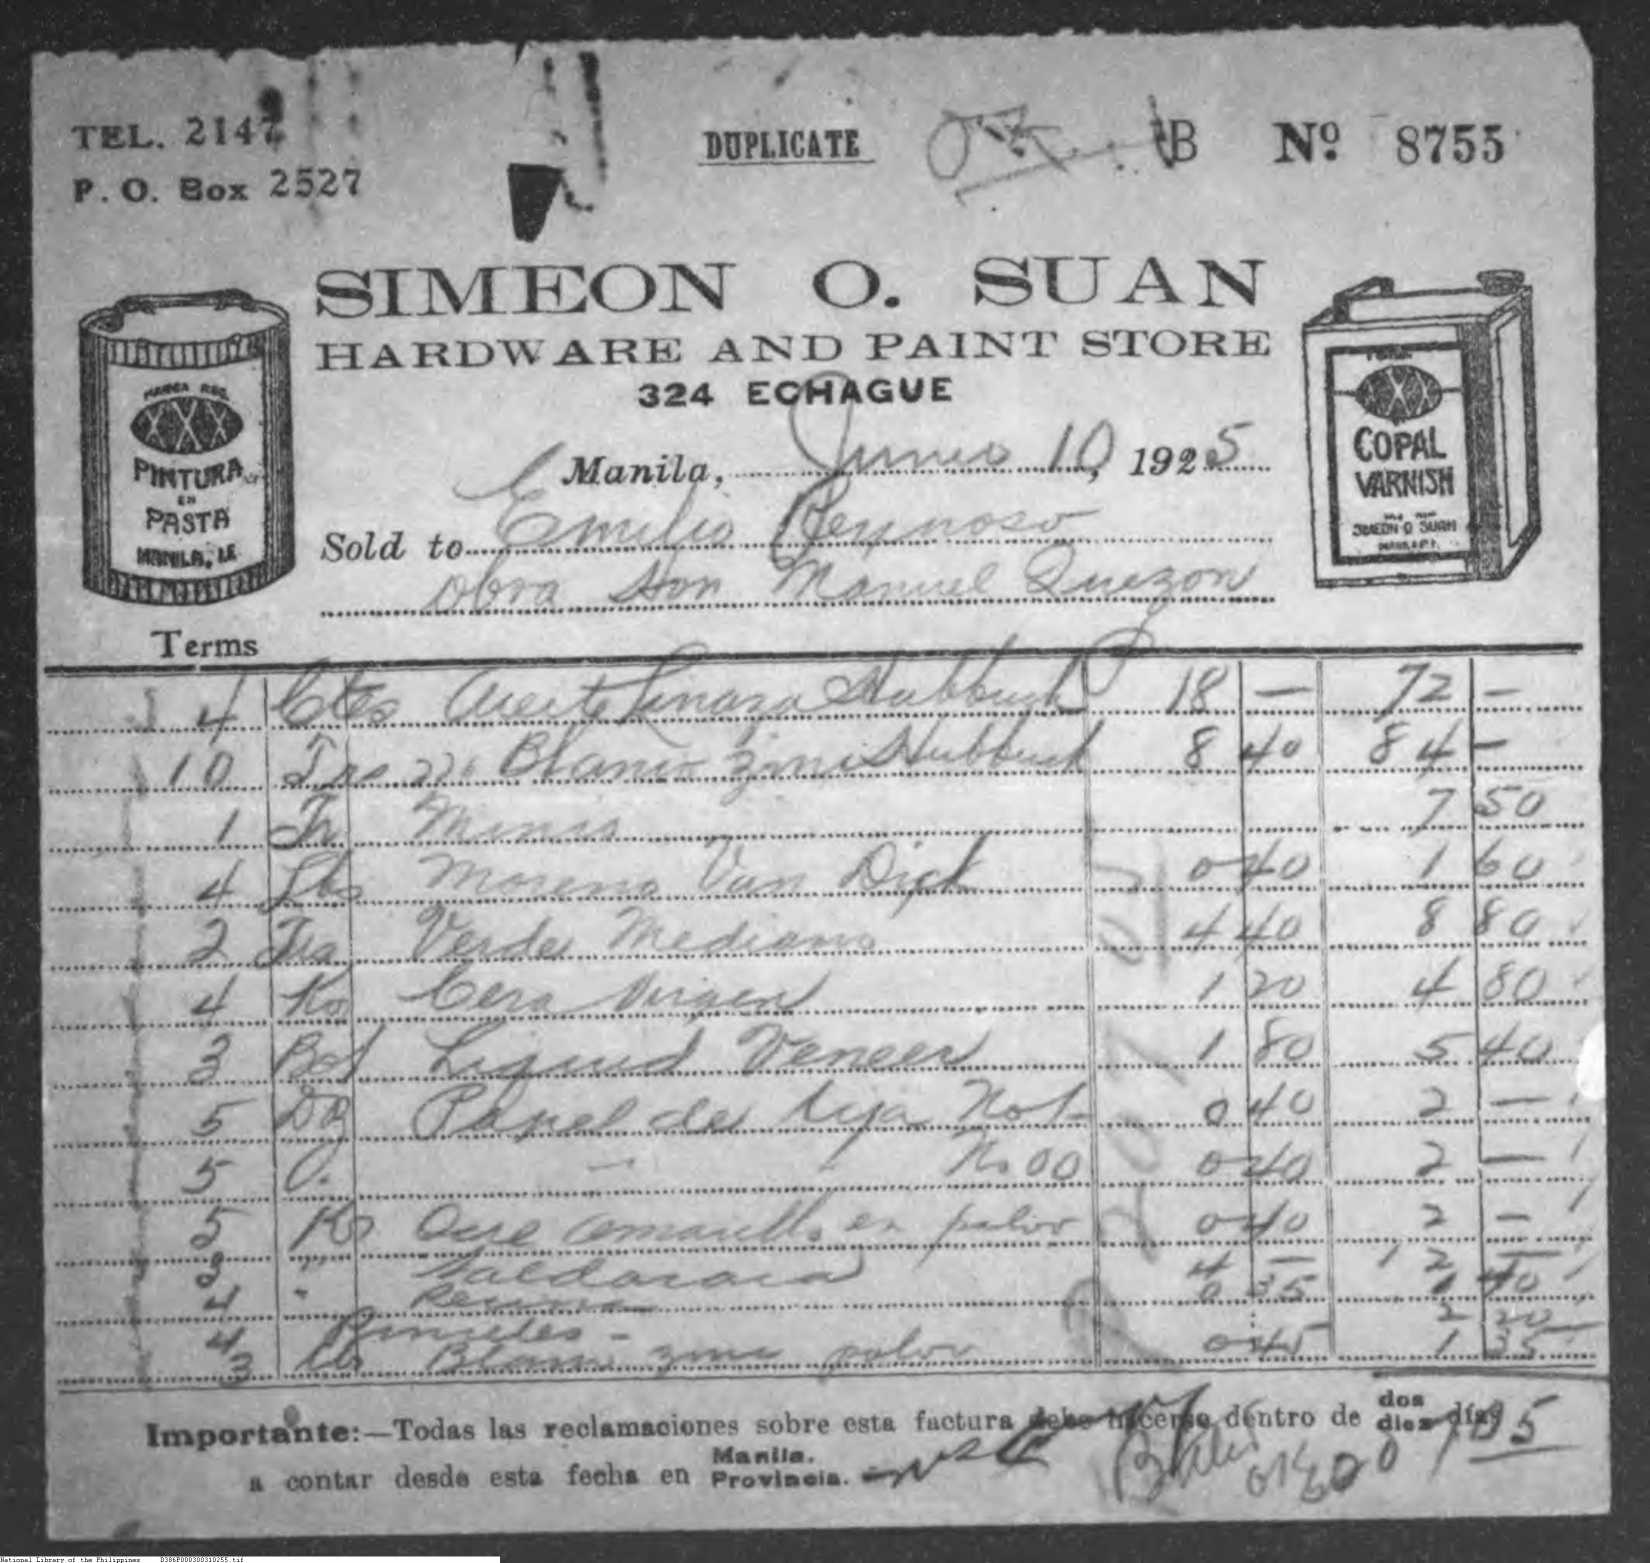 TEL. 2147
P. O. Box 2527
DUPLICATE
B Nº 8755
SIMEON O. SUAN
HARDWARE AND PAINT STORE
324 ECHAGUE
MARCA REG.
XXX
PINTURA
EN
PASTA
MANILA, I.F.
COPAL
VARNISH
SIMEON O SUAN
MANILA P.I.
Manila, Junio 10, 1925
Sold to Emilio Reynoso
obra Hon Manuel Quezon
Terms
4 Ctes Aceite Linaza Hubbuck 18 — 72 —
10 Blanco zinc Hubbuck 8 40 84 —
1 Minio 7 50
4 Lbs Moreno Van Dick 0 40 1 60
2 Verde Mediano 4 40 8 80
4 Ks Cera Virgen 1 20 4 80
3 Bot Liquid Veneer 1 80 5 40
5 Dz Papel de lija No 1 0 40 2 —
5 " — " No 00 0 40 2 —
5 Ks Ocre amarillo en polvo 0 40 2 —
3 " 4 — 12 —
4 " Resina 0 35 1 40
4 Pinceles — 2 20
3 Blanco zinc polvo 0 45 1 35
Importante:—Todas las reclamaciones sobre esta factura debe hacerse dentro de dos diez días
a contar desde esta fecha en Manila. Provincia.
National Library of the Philippines D386P000300310255.tif